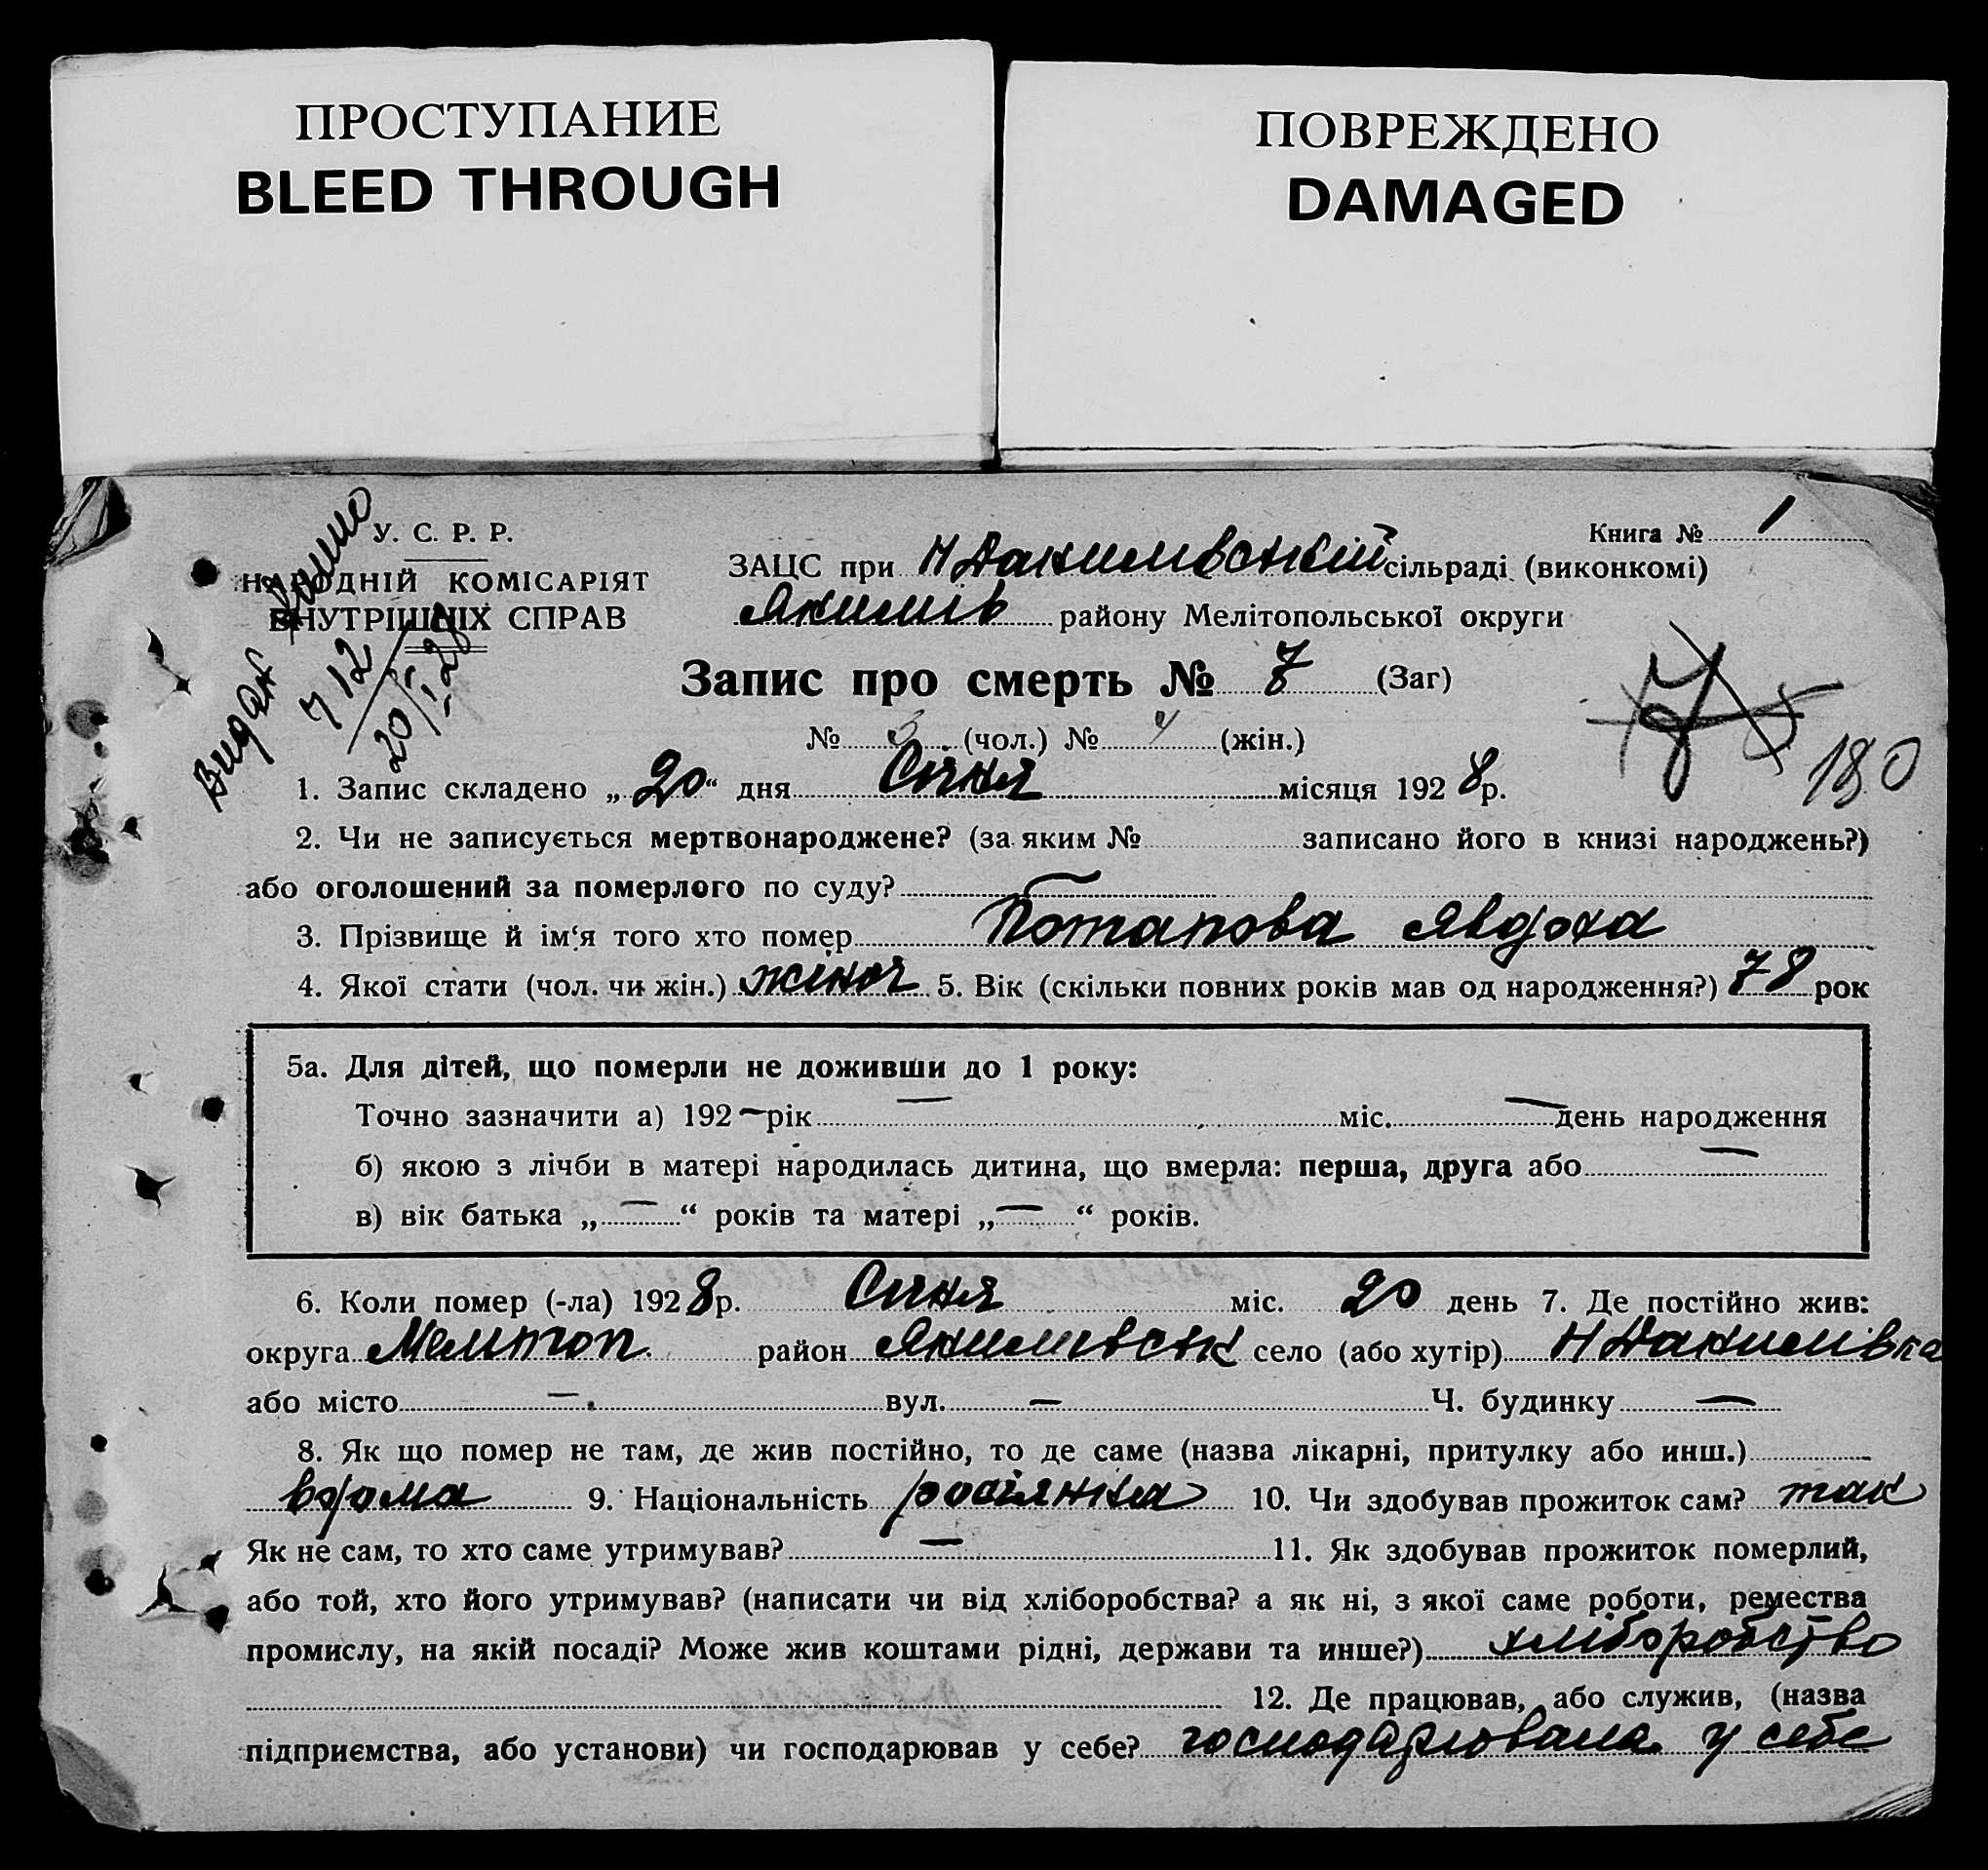 ПРОСТУПАНИЕ
BLEED THROUGH
ПОВРЕЖДЕНО
DAMAGED
У. С. Р. Р.
НАРОДНІЙ КОМІСАРІЯТ
ВНУТРІШНІХ СПРАВ
712
20/I-28
Книга № 1
ЗАЦС при Н Данилівській сільраді (виконкомі)
Якимів району Мелітопольської округи
Запис про смерть № 7 (Заг)
№ 3 (чол.) № 4 (жін.)
180
1. Запис складено „20“ дня Січня місяця 1928 р.
2. Чи не записується мертвонароджене? (за яким № записано його в книзі народжень?)
або оголошений за померлого по суду? —
3. Прізвище й ім‘я того хто помер Потапова Явдоха
4. Якої стати (чол. чи жін.) жіноч 5. Вік (скільки повних років мав од народження?) 78 рок
5а. Для дітей, що померли не доживши до 1 року:
Точно зазначити а) 192 — рік — міс. — день народження
б) якою з лічби в матері народилась дитина, що вмерла: перша, друга або —
в) вік батька „—“ років та матері „—“ років.
6. Коли помер (-ла) 1928 р. Січня міс. 20 день 7. Де постійно жив:
округа Мелітоп. район Якимівськ село (або хутір) Н Данилівка
або місто — вул. — Ч. будинку —
8. Як що помер не там, де жив постійно, то де саме (назва лікарні, притулку або инш.)
вдома 9. Національність росіянка 10. Чи здобував прожиток сам? так
Як не сам, то хто саме утримував? — 11. Як здобував прожиток померлий,
або той, хто його утримував? (написати чи від хліборобства? а як ні, з якої саме роботи, ремества
промислу, на якій посаді? Може жив коштами рідні, держави та инше?) хліборобство
12. Де працював, або служив, (назва
підприємства, або установи) чи господарював у себе? господарювала у себе